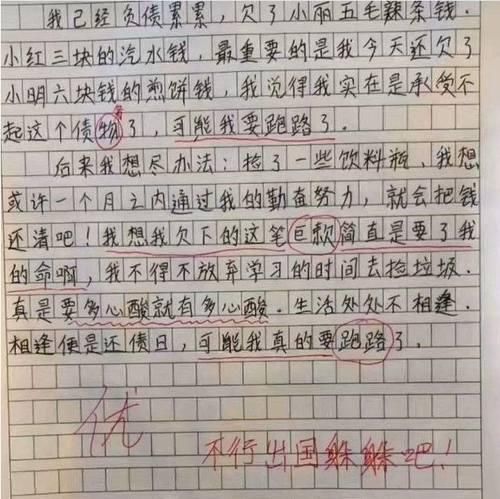 我已经负债累累，欠了小丽五毛辣条钱.
小红三块的汽水钱，最重要的是我今天还欠了
小明六块钱的煎饼钱，我觉得我实在是承受不
务
起这个债物了，可能我要跑路了.
后来我想尽办法：捡了一些饮料瓶，我想
或许一个月之内通过我的勤奋努力，就会把钱
还清吧！我想我欠下的这笔巨款简直是要了我
的命啊，我不得不放弃学习的时间去捡垃圾.
真是要多心酸就有多心酸.生活处处不相逢
相逢便是还债日，可能我真的要跑路了.
优
不行出国躲躲吧！